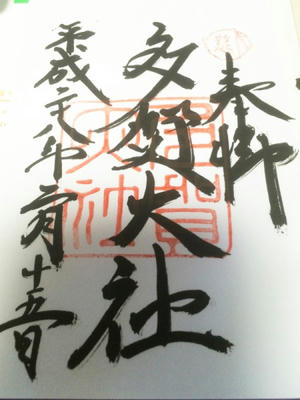 奉拝
多賀大社
平成二八年二月十五日
多賀大社